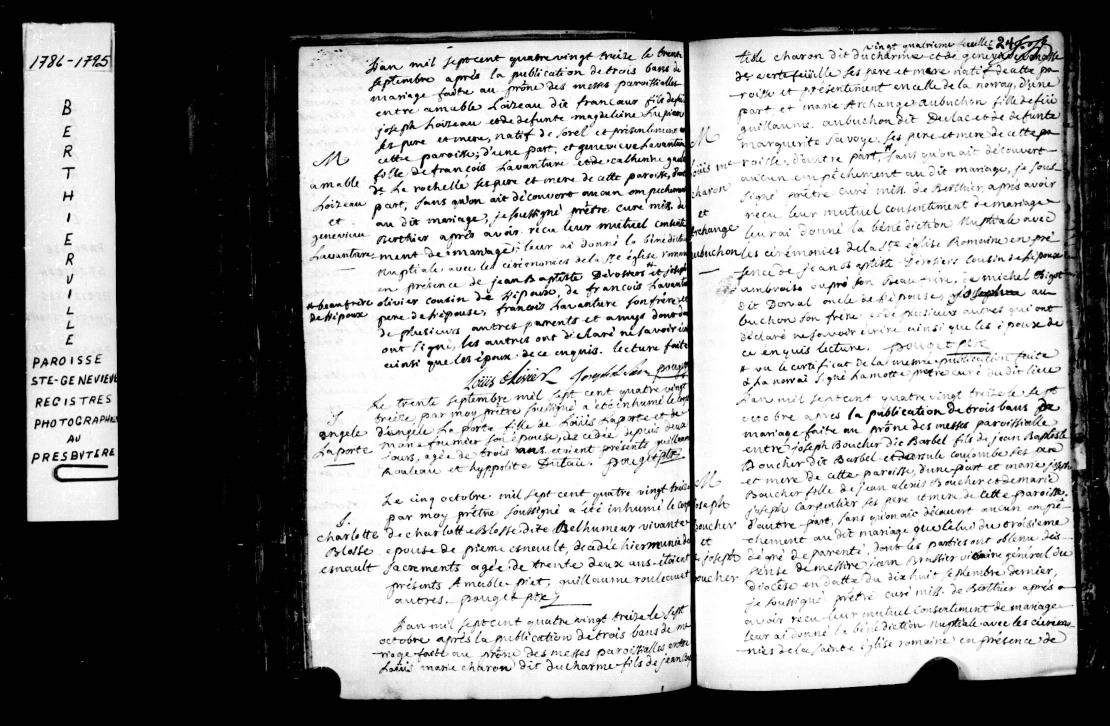 1786-1795
BERTHIERVILLE
PAROISSE
STE-GENEVIEVE
REGISTRES
PHOTOGRAPHIES
AU
PRESBYTERE
L'an mil sept cent quatre vingt treize le trente
septembre après la publication de trois bans de
mariage faite au prône des messes paroissialles
entre amable Loizeau dit francœur fils de feu
joseph Loizeau et de defunte magdeleine
ses pere et mere, natif de Sorel et présentement en
cette paroisse; d'une part; et genevieve Lavanture
fille de françois Lavanture et de catherine
de La rochelle ses pere et mere de cette paroisse, d'autre
part, sans qu'on ait découvert aucun empechement
au dit mariage, je soussigné prêtre curé miss. de
Berthier après avoir recu leur mutuel consente
ment de mariage; leur ai donné la bénediction
Nuptiale avec les cérémonies de la Ste église romaine
en présence de jean Baptiste Dérosiers et joseph
olivier cousin de l'épouse, de françois Lavanture
pere de l'épouse, françois Lavanture son frère et
de plusieurs autres parents et amys dont
ont signé, les autres ont déclaré ne savoir écrire
ainsi que les époux. de ce enquis. lecture faite
Louis Olivier pouget
M
amable
Loizeau
et
genevieve
Lavanture
beaufrere
de l'époux
Le trente septembre mil sept cent quatre vingt
treize, par moy prêtre soussigné a été inhumé le corps
d'angele La porte fille de Loüis Laporte et de
marie fournier son épouse, décedée depuis deux
jours, agée de trois ans. etoient présents guillaume
Rouleau et hyppolite Dulac. pouget ptre
S
angele
Laporte
Le cinq octobre mil sept cent quatre vingt treize
par moy prêtre soussigné a été inhumé le corps
de charlotte Blosse, dite Belhumeur vivante
epouse de pierre esneault, décédée hier munie des
sacrements agée de trente deux ans. étoient
présents Amable piet, guillaume rouleau et
autres. pouget ptre
S.
charlotte
Blosse
esneault
L'an mil sept cent quatre vingt treize le sept
octobre après la publication de trois bans de ma
riage faite au prône des messes paroissialles entre
Loüis marie charon dit ducharme fils de jean Bap
vingt quatrieme feuillet 24
tiste charon dit ducharme et de geneviève
de vertefeüille ses pere et mere natif de cette pa
roisse et présentement en celle de la norray, d'une
part et marie Archange aubuchon fille de feü
guillaume aubuchon dit Dulac et de defunte
marguerite Savoye, ses pere et mere de cette pa
roisse, d'autre part, sans qu'on ait découvert
aucun empêchement au dit mariage, je sous
signé prêtre curé miss. de Berthier, après avoir
recu leur mutuel consentiment de mariage
leur ai donné la bénédiction Nuptiale avec
les cérémonies de la Ste église Romaine en pré
sence de jean Baptiste Dérosiers cousin de l'épouse
ambroise oupré son Beaufrère, de michel
dit Dorval oncle de l'épouse, joseph au
buchon son frère et de plusieurs autres qui ont
déclaré ne savoir écrire ainsi que les époux de
ce enquis lecture. pouget ptre
et vu le certificat de la meme publication faite
à La norrai signé Lamotte prêtre curé du dit lieu
M
Loüis me
charon
et
archange
aubuchon
L'an mil sept cent quatre vingt treize le sept
octobre après la publication de trois bans de
mariage faite au prône des messes paroissialle
entre joseph Boucher dit Barbel fils de jean Baptiste
Boucher dit Barbel et d'ursule coulombe ses pere
et mere de cette paroisse, d'une part et marie joseph
Boucher fille de jean alexis Boucher et de marie
joseph Carpentier ses pere et mere de cette paroisse
d'autre part, sans qu'on ait découvert aucun empê
chement au dit mariage que celui du troisieme
dégré de parenté, dont les parties ont obtenu dis
pense de messire jean Brassier vicaire général du
diocèse en datte du dix huit septembre dernier,
je soussigné prêtre curé miss. de Berthier après
avoir recu leur mutuel Consentement de mariage
leur ai donné la bénédiction Nuptiale avec les cérémo
nies de la sainte église romaine en présence de
M
joseph
Boucher
et
me joseph
Boucher